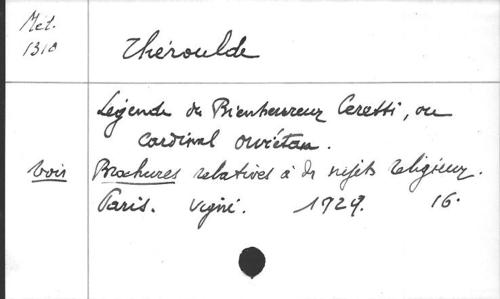 Mél.
1310
Théroulde
Légende du Bienheureux Ceretti, ou
cardinal orviétan.
voir Brochures relatives à des sujets religieux.
Paris. Vigné. 16.